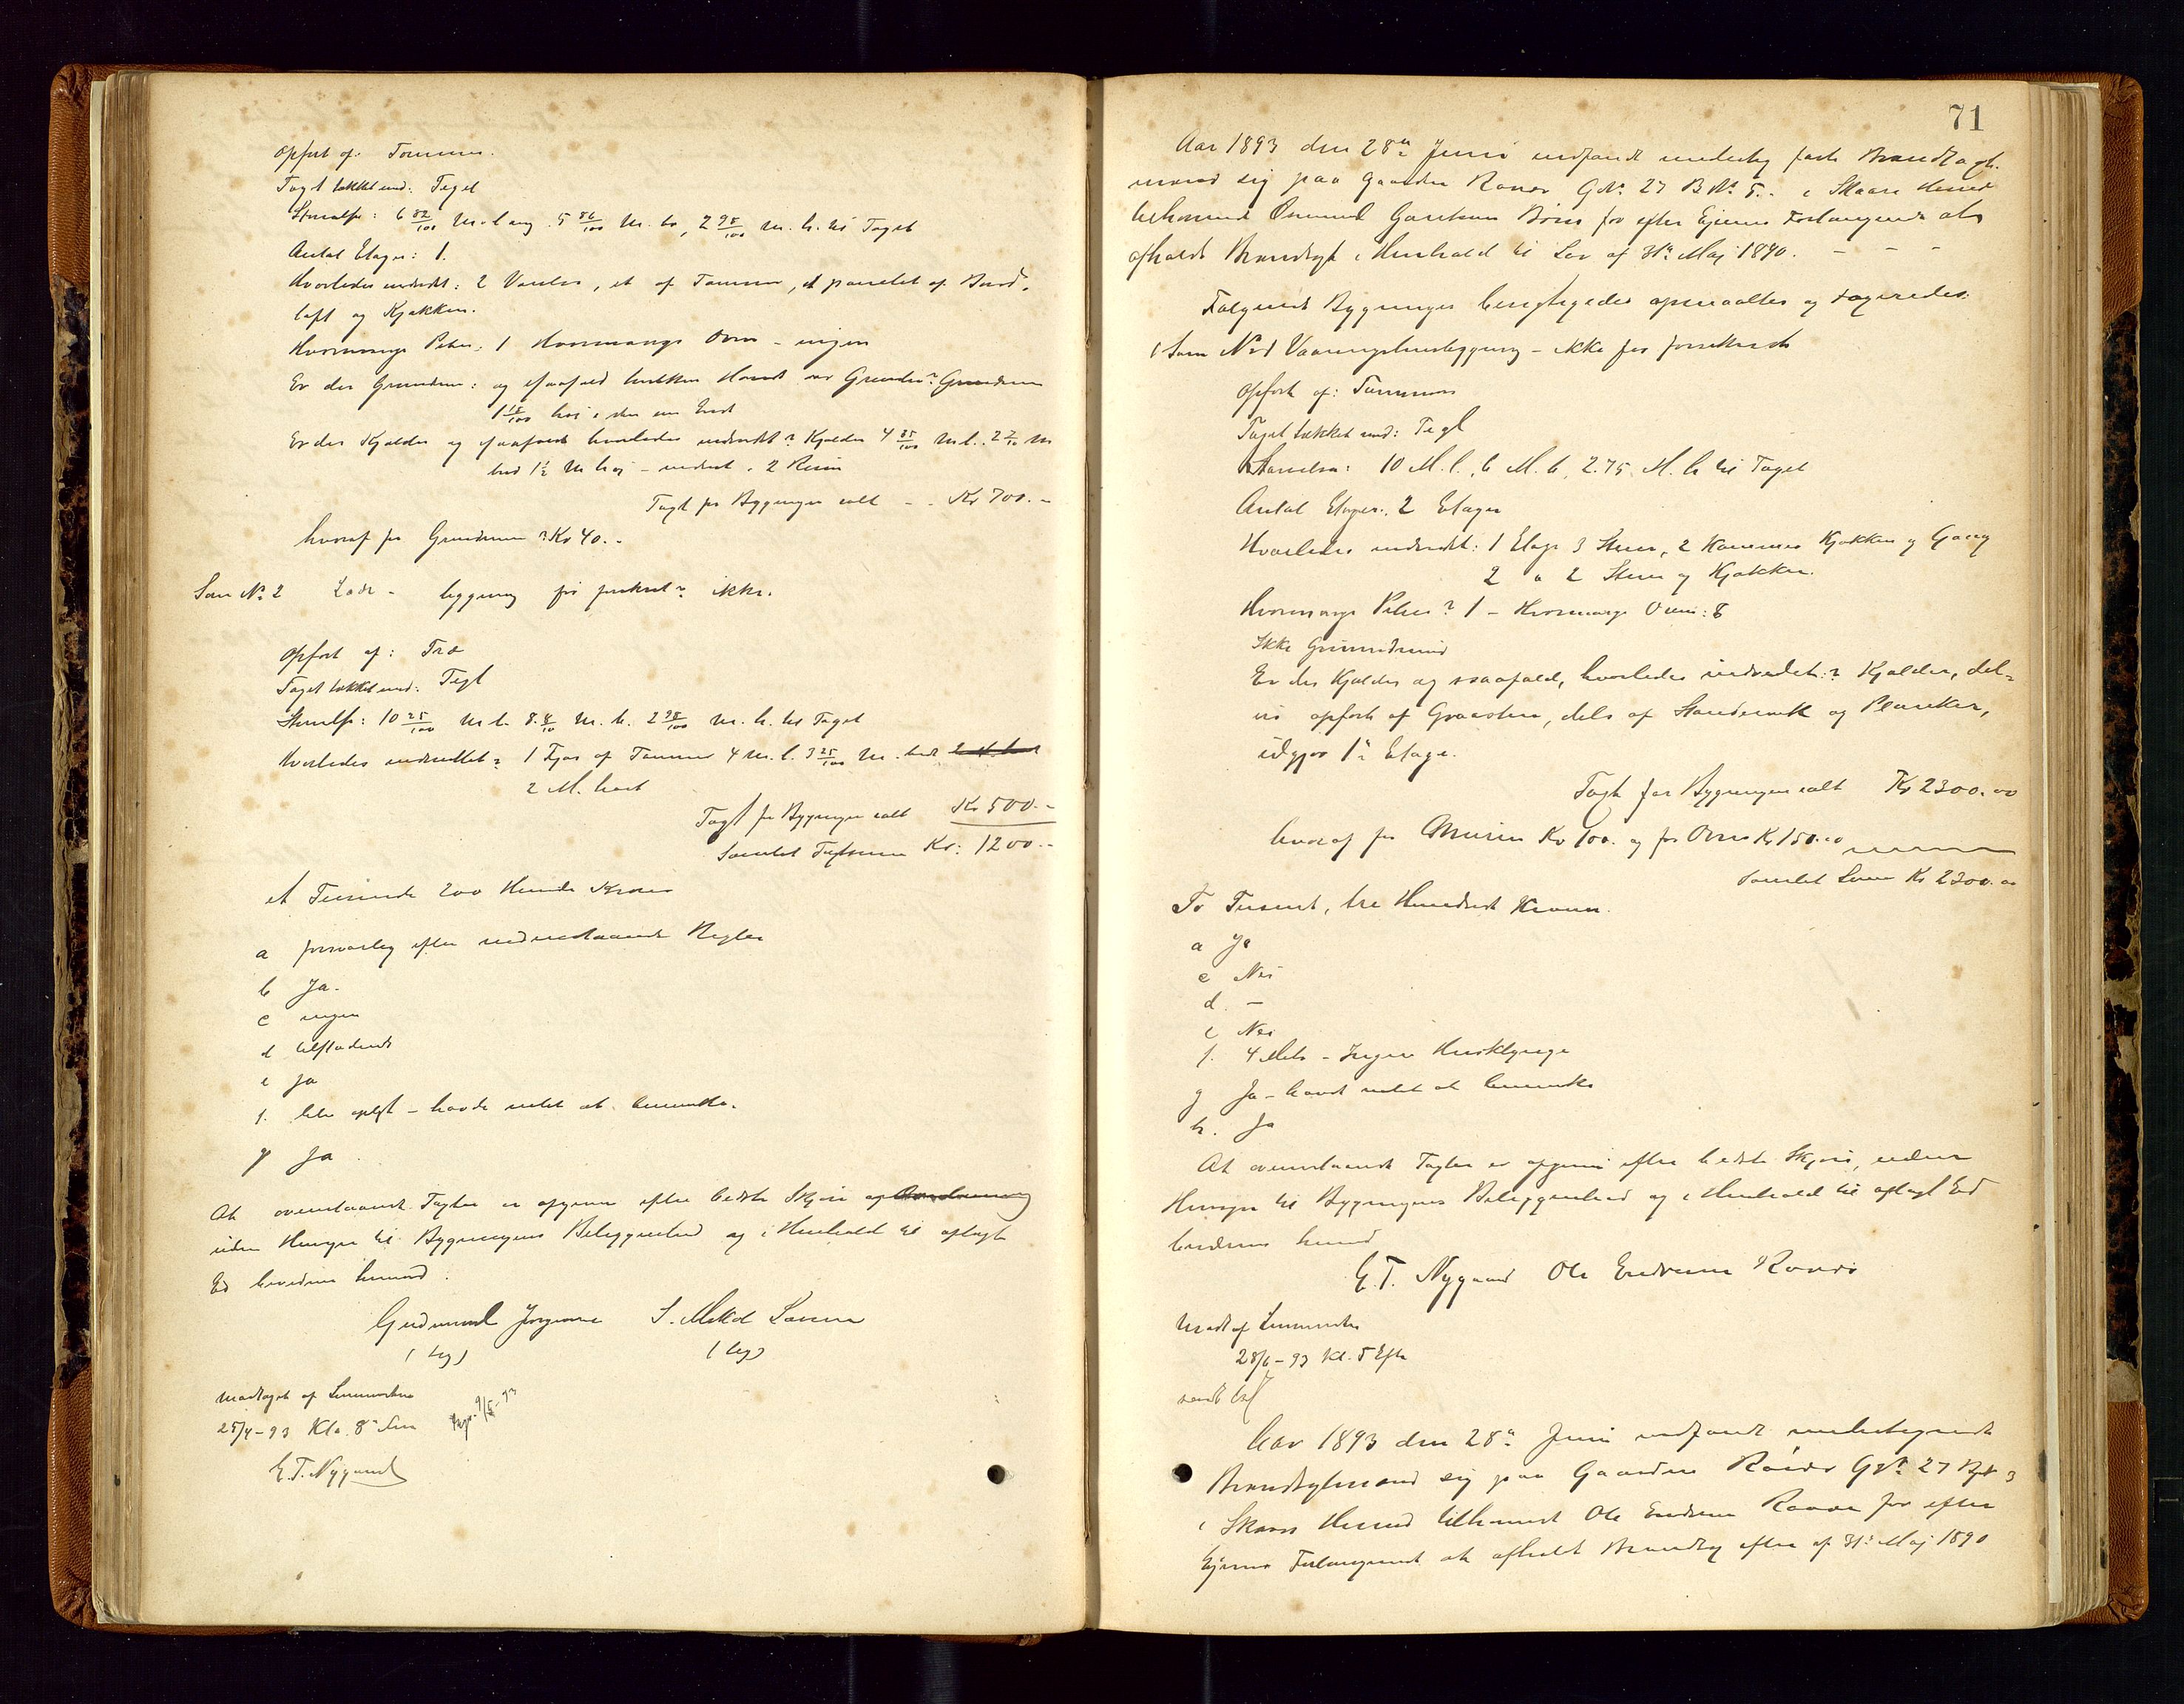 Opført af: Tømmer.
Taget tækket med: Tegl
Størrelse: 6 82/100 M. lang. 5 86/100 M. br, 2 98/100 M. h. til Taget
Antal Etager: 1.
Hvorledes indredet: 2 Værelser, et af Tømmer, et panelet af Bord,
loft og Kjøkken.
Hvormange Piber: 1 Hvormange Ovne - ingen
Er der Grundmur: og isaafald hvilken Værdi har Grunden? Grundmur
1 15/100 høi i den ene Ende
Er der Kjælder og isaafald hvorledes indredet? Kjelder 4 85/100 M l. 2 7/10 M
bred 1½ M høj - indredet i 2 Rum
Taxt for Bygningen ialt - . Kr 700.-
hvoraf for Grundmur? Kr 40.-
Som No 2 Lade - bygning før forsikret? ikke.
Opført af: Træ
Taget tækket med: Tegl
Størrelse: 10 25/100 M l. 8 8/10 M. b. 2 98/100 M. h. til Taget
Hvorledes indrettet? 1 Fjøs af Tømmer 4 M. l. 3 25/100 M. bred
2 M. høit
Taxt for Bygningen ialt Kr 500.-
Samlet Taxtsum Kr: 1200.-
et Tusinde 200 Hundr Kroner
a forsvarlig efter nedenstaaende Regler
b Ja.
c ingen
d tilstede
e Ja
f. - havde intet at bemerke.
g Ja
At ovenstaaende Taxter er afgivne efter bedste Skjøn og
uden Hensyn til Bygningens Beliggenhed og i Henhold til aflagt
Ed bevidnes herved.
Gudmund Jørgensen S. Larsen
Modtaget af Lensmanden
25/4-93 Kl. 8
E. T. Nygaard
71
Aar 1893 den 28de Juni indfandt undertegnede Brandtaxt-
mænd sig paa Gaarden Røvær G.No. 27 B No. 5. i Skaare Herred
tilhørende Osmund Børn for efter Ejerens Forlangende at
afholde Brandtaxt i Henhold til Lov af 31te Maj 1890. - - -
Følgende Bygninger besigtigedes opmaaltes og taxeredes:
Som No 1 Vaaningshusbygning - ikke før forsikret
Opført af: Tømmer
Taget tækket med: Tegl
Størrelse: 10 M. l. 6 M. b. 2.75 M. h. til Taget
Antal Etager: 2 Etager
Hvorledes indredet: 1 Etage 3 Stuer, 2 Kammer Kjøkken og Gang
2 " 2 Stuer og Kjøkken.
Hvormange Piber? 1 - Hvormange Ovne: 8
Ikke Grundmur
Er der Kjælder og isaafald, hvorledes indredet:? Kjælder, del-
vis opført af Graasten, dels af Standerværk og Planker,
udgjør 1te Etage.
Taxt for Bygningen ialt Kr 2300.00
hvoraf for Muren Kr 100. og for Ovne Kr 150.00
Samlet Sum Kr 2300.00
To Tusend, tre Hundrede Kroner.
a Ja
c Nei
d. -
e Nei
f. 4 Meter - Ingen Husklynge
g Ja - havde intet at bemerke
h. Ja
At ovenstaaende Taxter er afgivne efter bedste Skjøn, uden
Hensyn til Bygningens Beliggenhed og i Henhold til aflagt Ed
bevidnes herved
E. T. Nygaard Ole Endresen Røvær
Modt af Lensmanden
28/6-93 Kl. 5 Eftm
Aar 1893 den 28de Juni indfandt undertegnede
Brandtaxtmænd sig paa Gaarden Røvær G No 27 B No 3
i Skaare Herred tilhørende Ole Endresen Røvær for efter
Ejerens Forlangende at afholde Brandtaxt efter af 31te Maj 1890